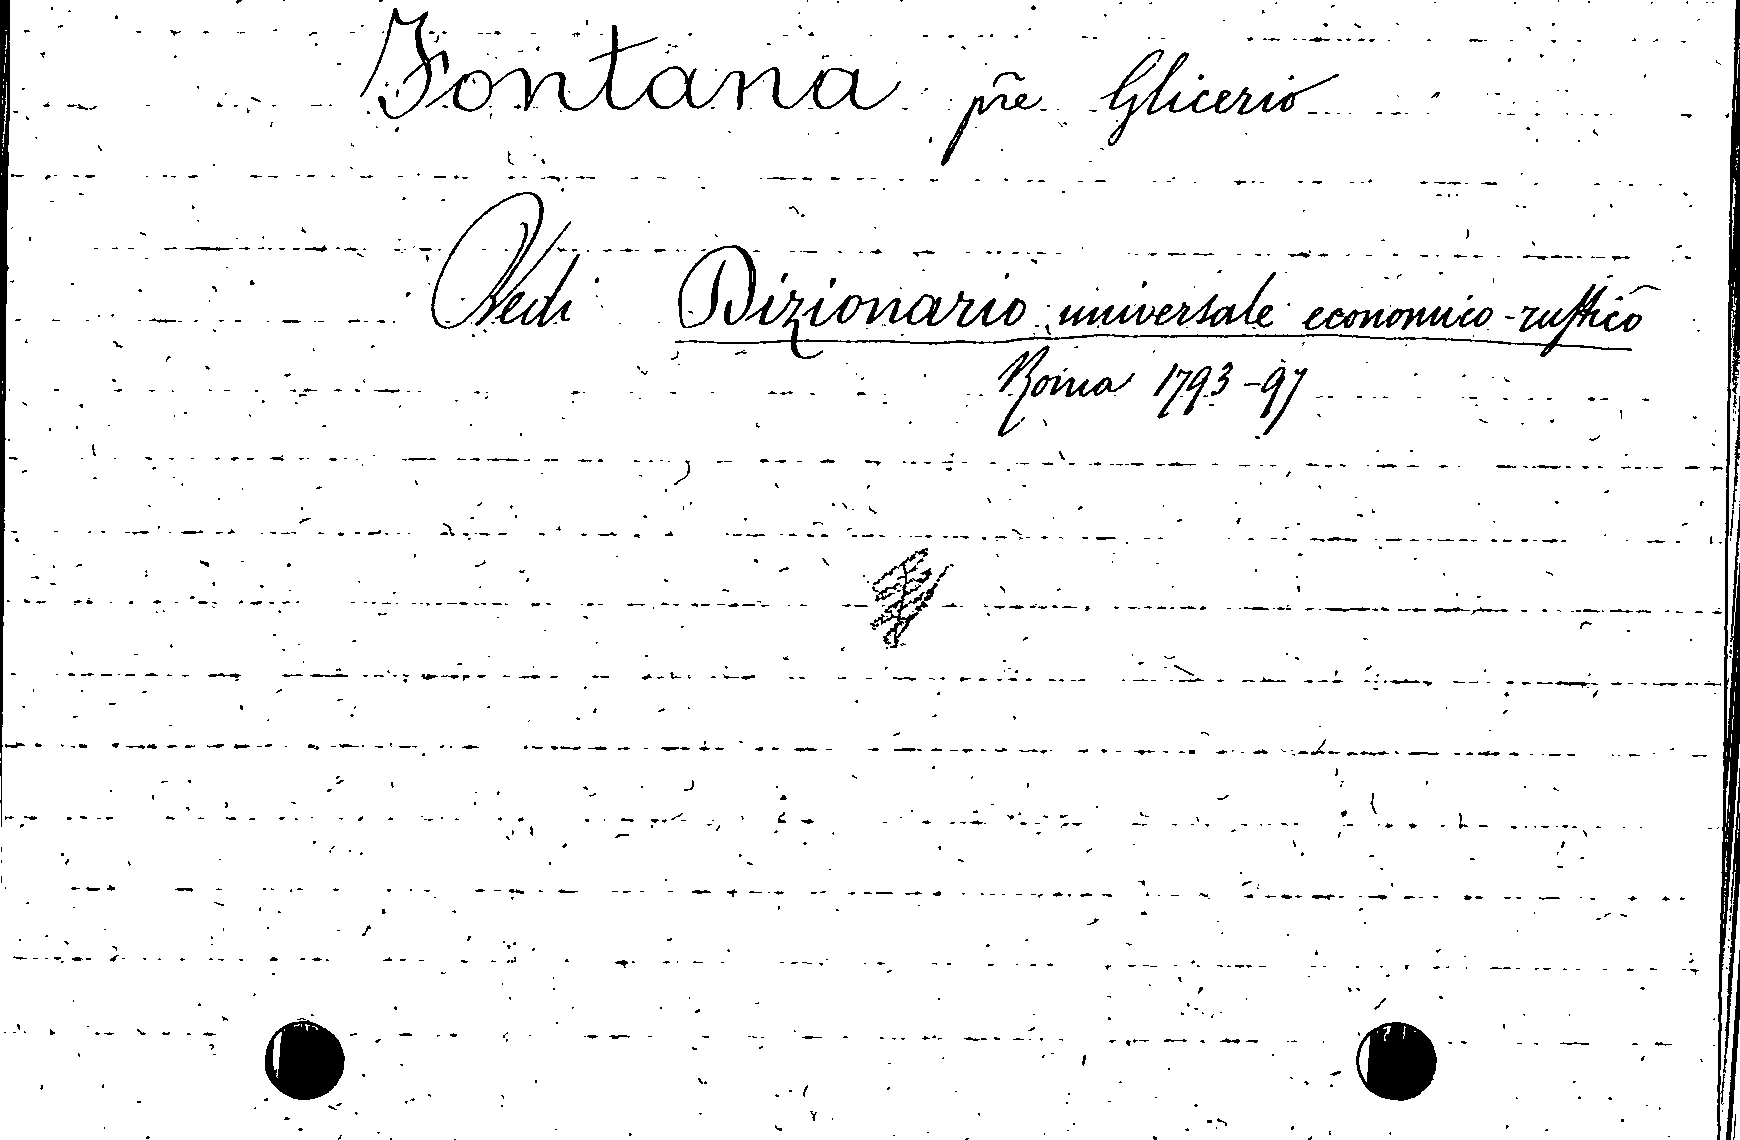 Fontana p̃re Glicerio
Vedi Dizionario universale economico-rustico
Roma 1793-97